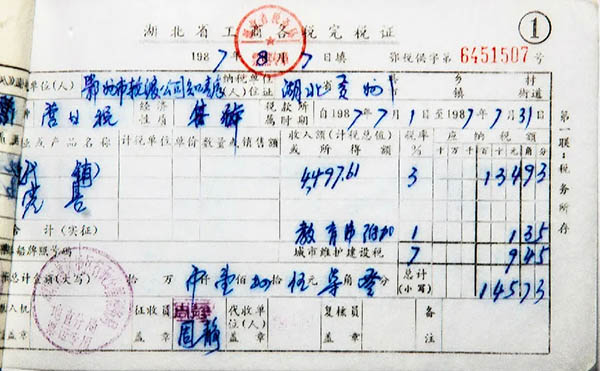 湖北省工商各税完税证
①
1987年8月7日填 鄂税催字第6451507号
单位(人) 鄂州市 公司 纳税单位(人)住址 湖北省黄州 乡镇 村街道
营业税 经济性质 集 税款所属时期 自1987年7月1日至1987年7月31日
产品名称 计税单位 单价 数量 销售额 收入额(计税总值)或所得额 税率% 应纳税额 十万千百十元角分
4497.61 3 134 93
合计(实征) 教育费附加 1 1 35
船牌照号码 城市维护建设税 7 9 45
总计金额(大写) 拾万仟壹佰 拾伍元柒角叁分 总计(小写) 145 73
收入机 盖章 征收员盖章 周静 代收单位(人)盖章 复核员盖章 备注
第一联:税务所存